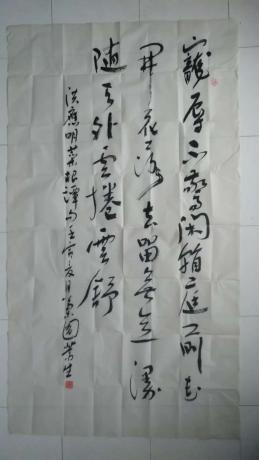 寵辱不驚閑看庭前花
開花落去留無意漫
随天外雲捲雲舒
洪應明菜根譚句壬寅夏月園榮生